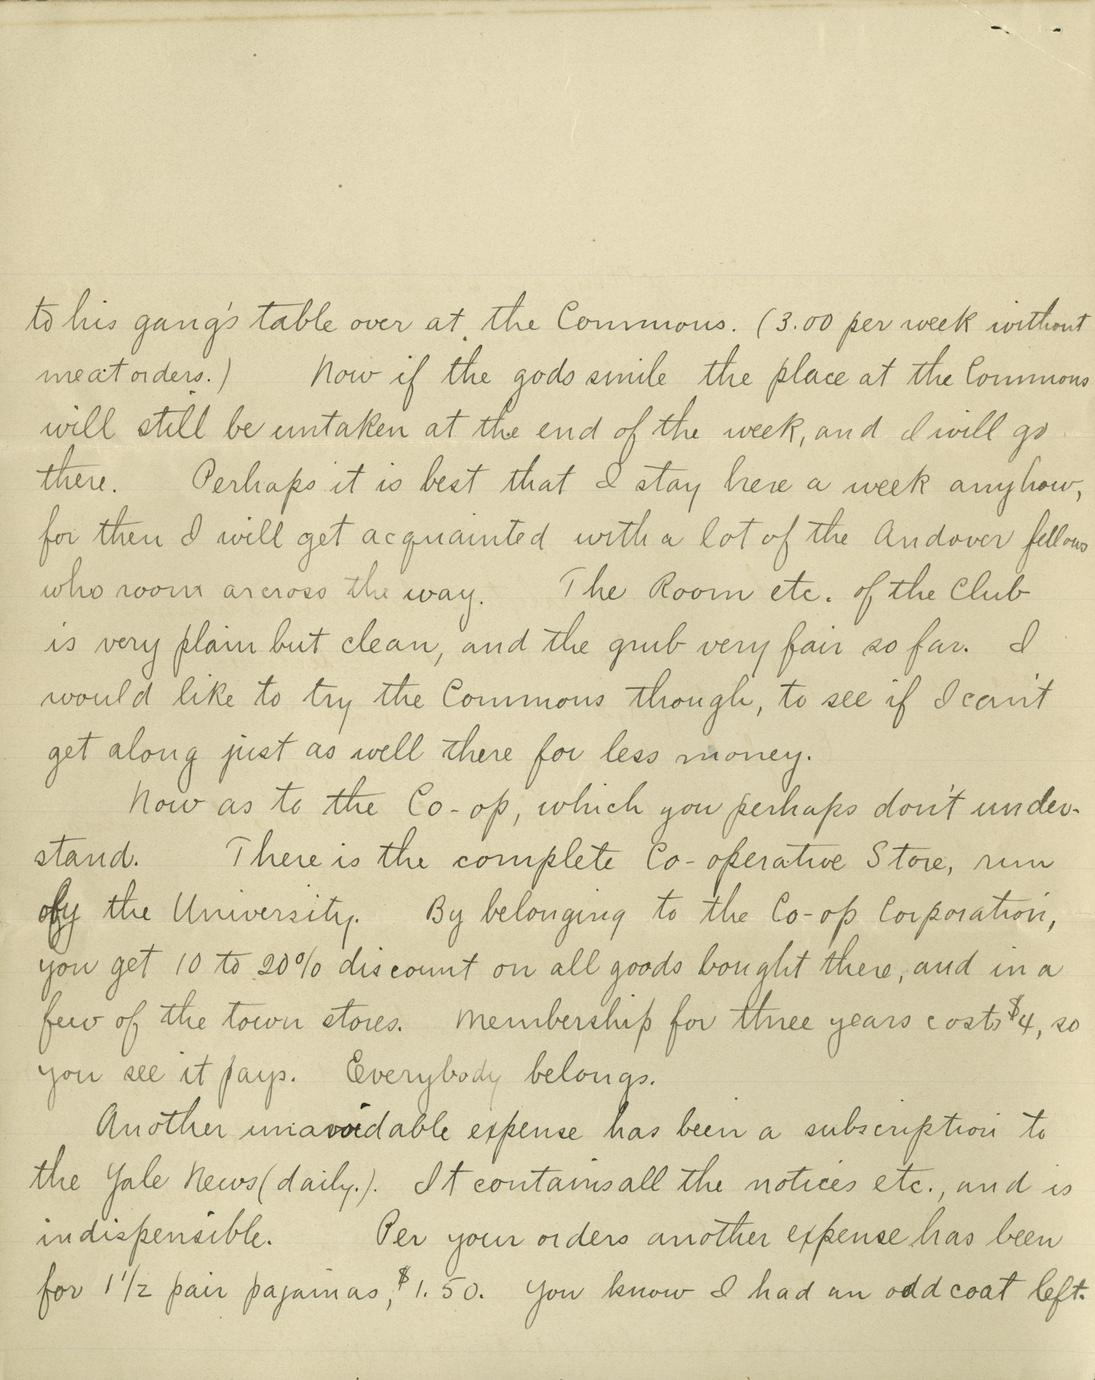 to his gang's table over at the Commons. (3.00 per week without
meat orders.) Now if the gods smile the place at the Commons
will still be untaken at the end of the week, and I will go
there. Perhaps it is best that I stay here a week anyhow,
for then I will get acquainted with a lot of the Andover fellows
who room arcross the way. The Room etc. of the Club
is very plain but clean, and the grub very fair so far. I
would like to try the Commons though, to see if I can't
get along just as well there for less money.
Now as to the Co-op, which you perhaps don't under-
stand. There is the complete Co-operative Store, run
by the University. By belonging to the Co-op Corporation,
you get 10 to 20% discount on all goods bought there, and in a
few of the town stores. Membership for three years costs $4, so
you see it pays. Everybody belongs.
Another unavoidable expense has been a subscription to
the Yale News (daily.). It contains all the notices etc., and is
indispensible. Per your orders another expense has been
for 1 1/2 pair pajamas, $1.50. You know I had an odd coat left.